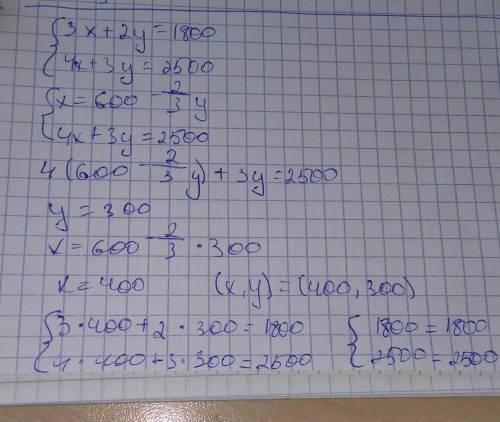 {3x+2y=1800
{4x+3y=2500
{x=600-2/3y
{4x+3y=2500
4(600-2/3y)+3y=2500
y=300
x=600-2/3·300
x=400 (x,y)=(400,300)
{3·400+2·300=1800 {1800=1800
{4·400+3·300=2500 {2500=2500